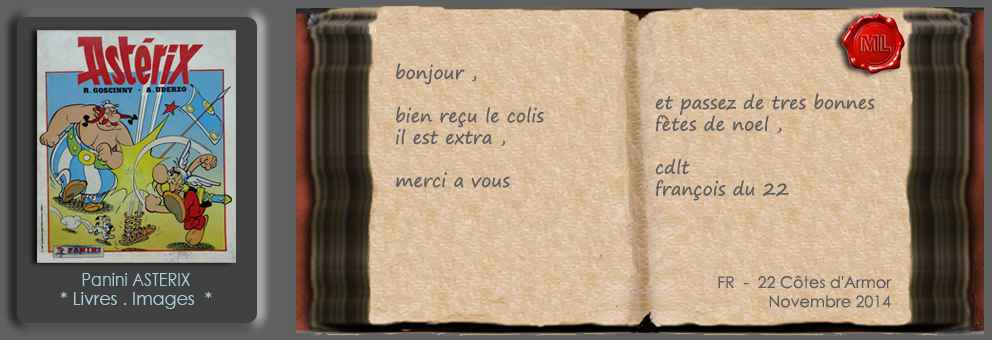 Astérix
R. GOSCINNY - A. UDERZO
PANINI
Panini ASTERIX
* Livres . Images *
bonjour ,
bien reçu le colis
il est extra ,
merci a vous
ML
et passez de tres bonnes
fètes de noel ,
cdlt
françois du 22
FR - 22 Côtes d'Armor
Novembre 2014